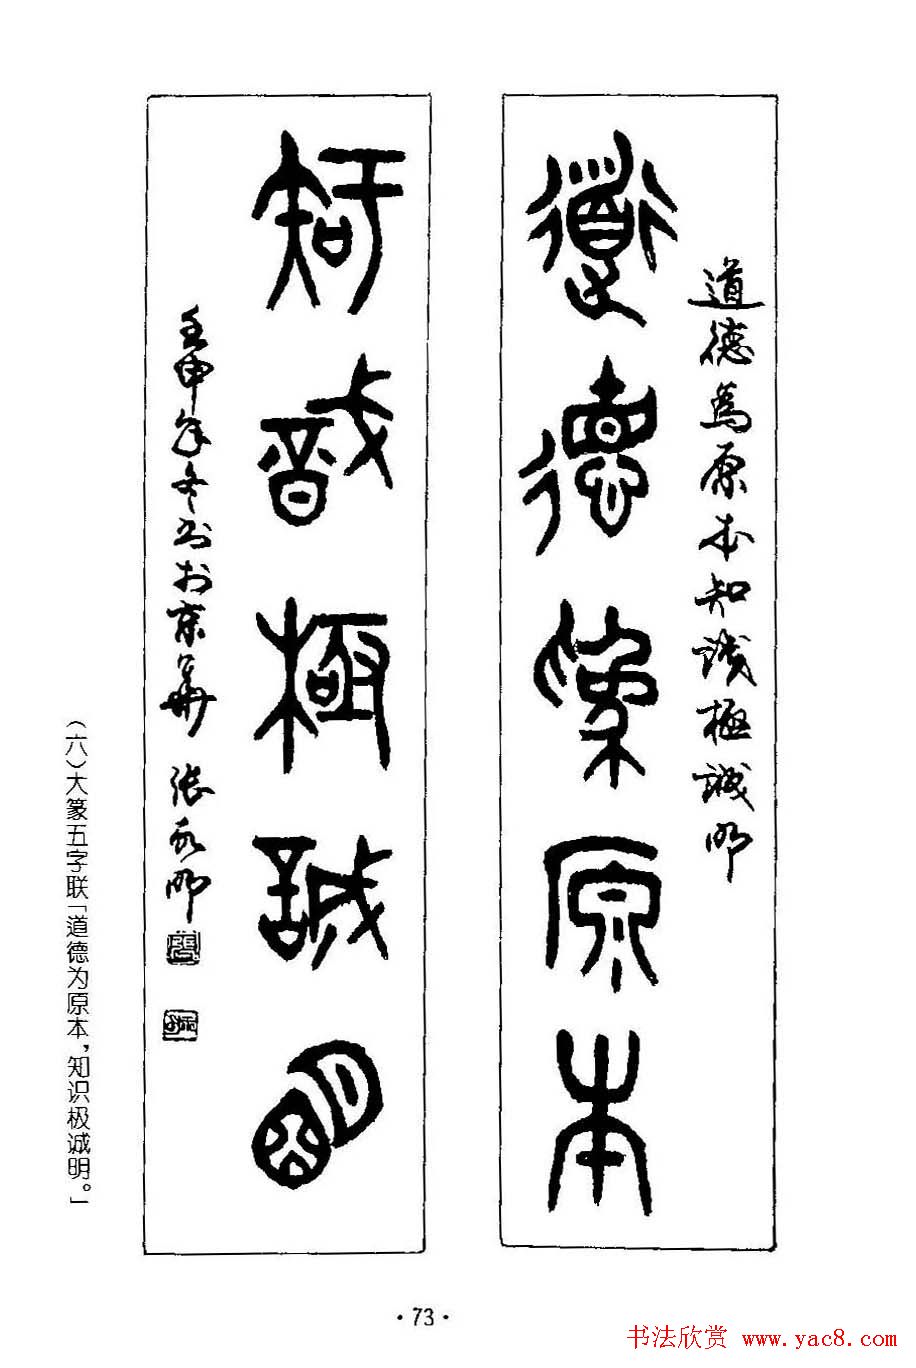 道德爲原本知識極誠明
道德爲原本
知識極誠明
壬申年冬书於京華 张永明
(六)大篆五字联「道德为原本，知识极诚明。」
·73·
书法欣赏 www.yac8.com